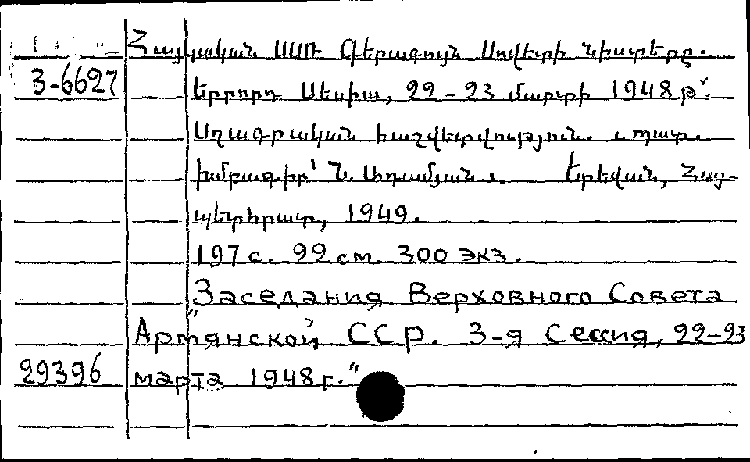 Հայկական ՍՍՌ Գերագույն Սովետի նիստերը.
3-6627 Երրորդ Սեսիա, 22-23 մարտի 1948 թ.
Սղագրական հաշվետվություն.
խմբագիր՝ Ն. Ադամյան. Երեվան, Հայ-
պետհրատ, 1949.
197 с. 22 см. 300 экз.
"Заседания Верховного Совета
Армянской ССР. 3-я Сессия, 22-23
29396 марта 1948 г."